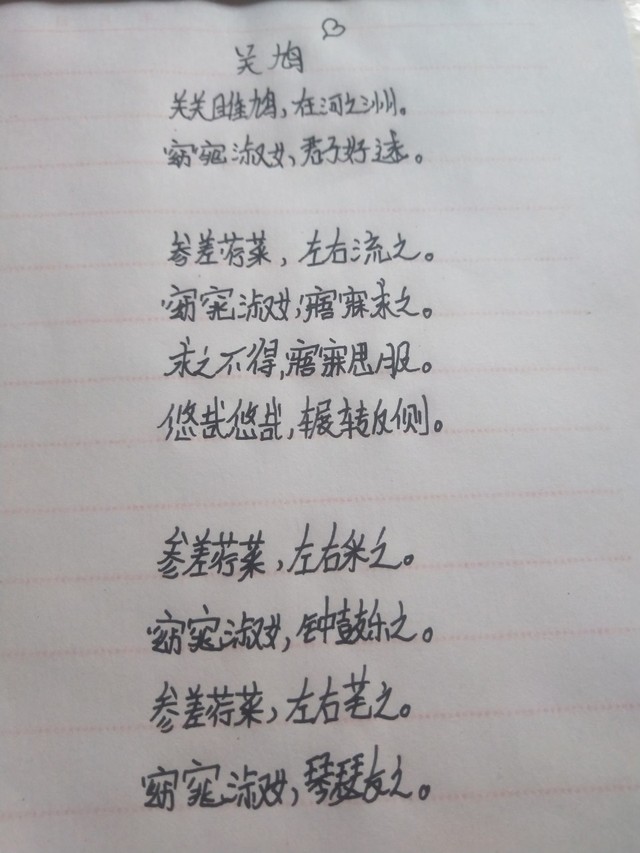 关鸠
关关雎鸠,在河之洲。
窈窕淑女,君子好逑。
参差荇菜,左右流之。
窈窕淑女,寤寐求之。
求之不得,寤寐思服。
悠哉悠哉,辗转反侧。
参差荇菜,左右采之。
窈窕淑女,钟鼓乐之。
参差荇菜,左右芼之。
窈窕淑女,琴瑟友之。